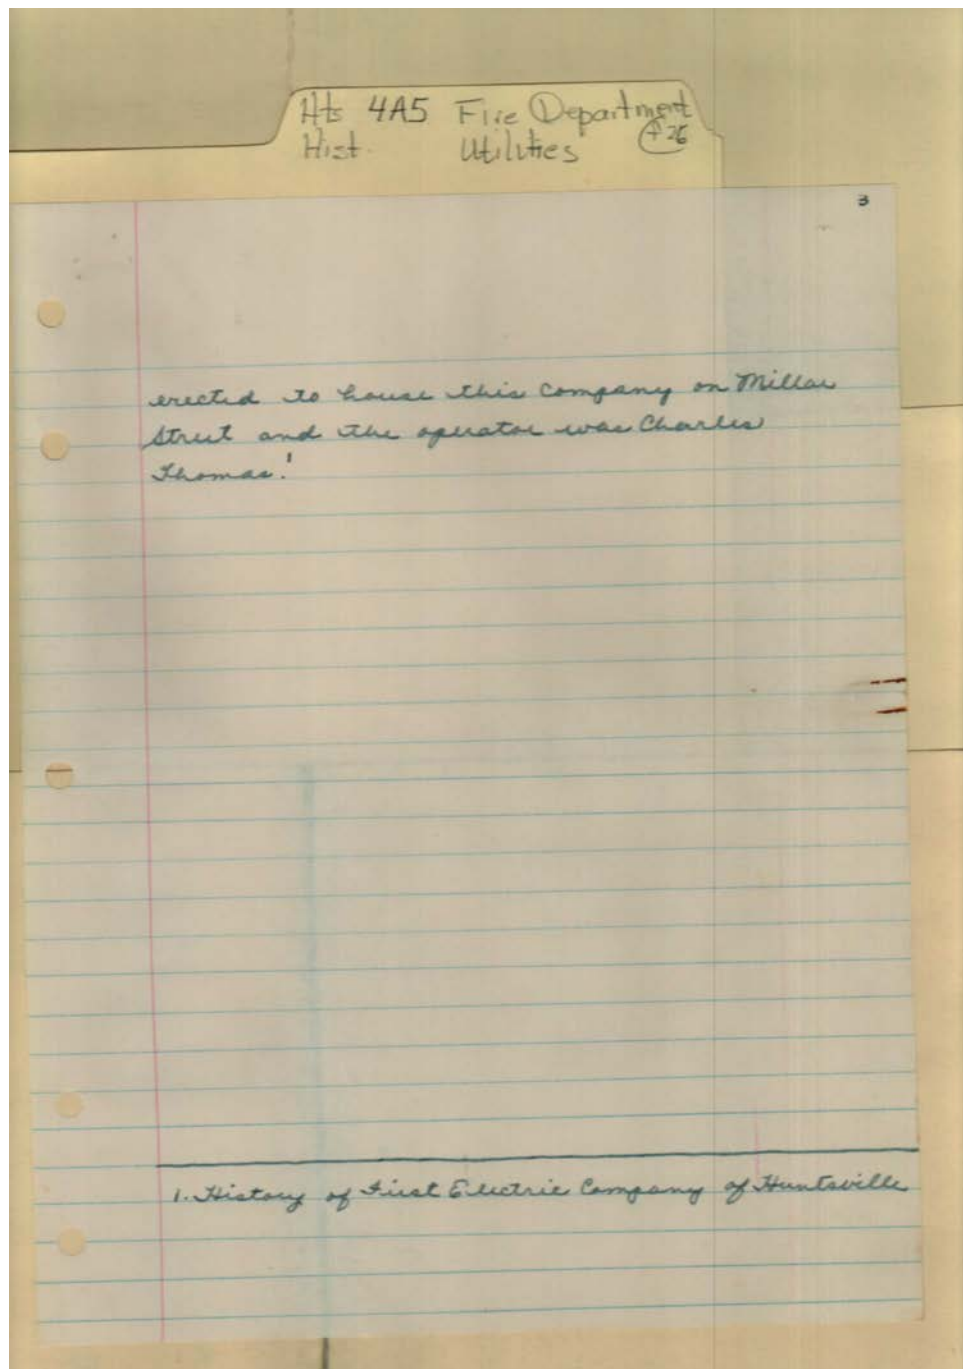 Hts 4A5 Fire Department
Hist. Utilities
3
erected to house this company on Millar
Street and the operator was Charles
Thomas.1
1. History of First Electric Company of Huntsville